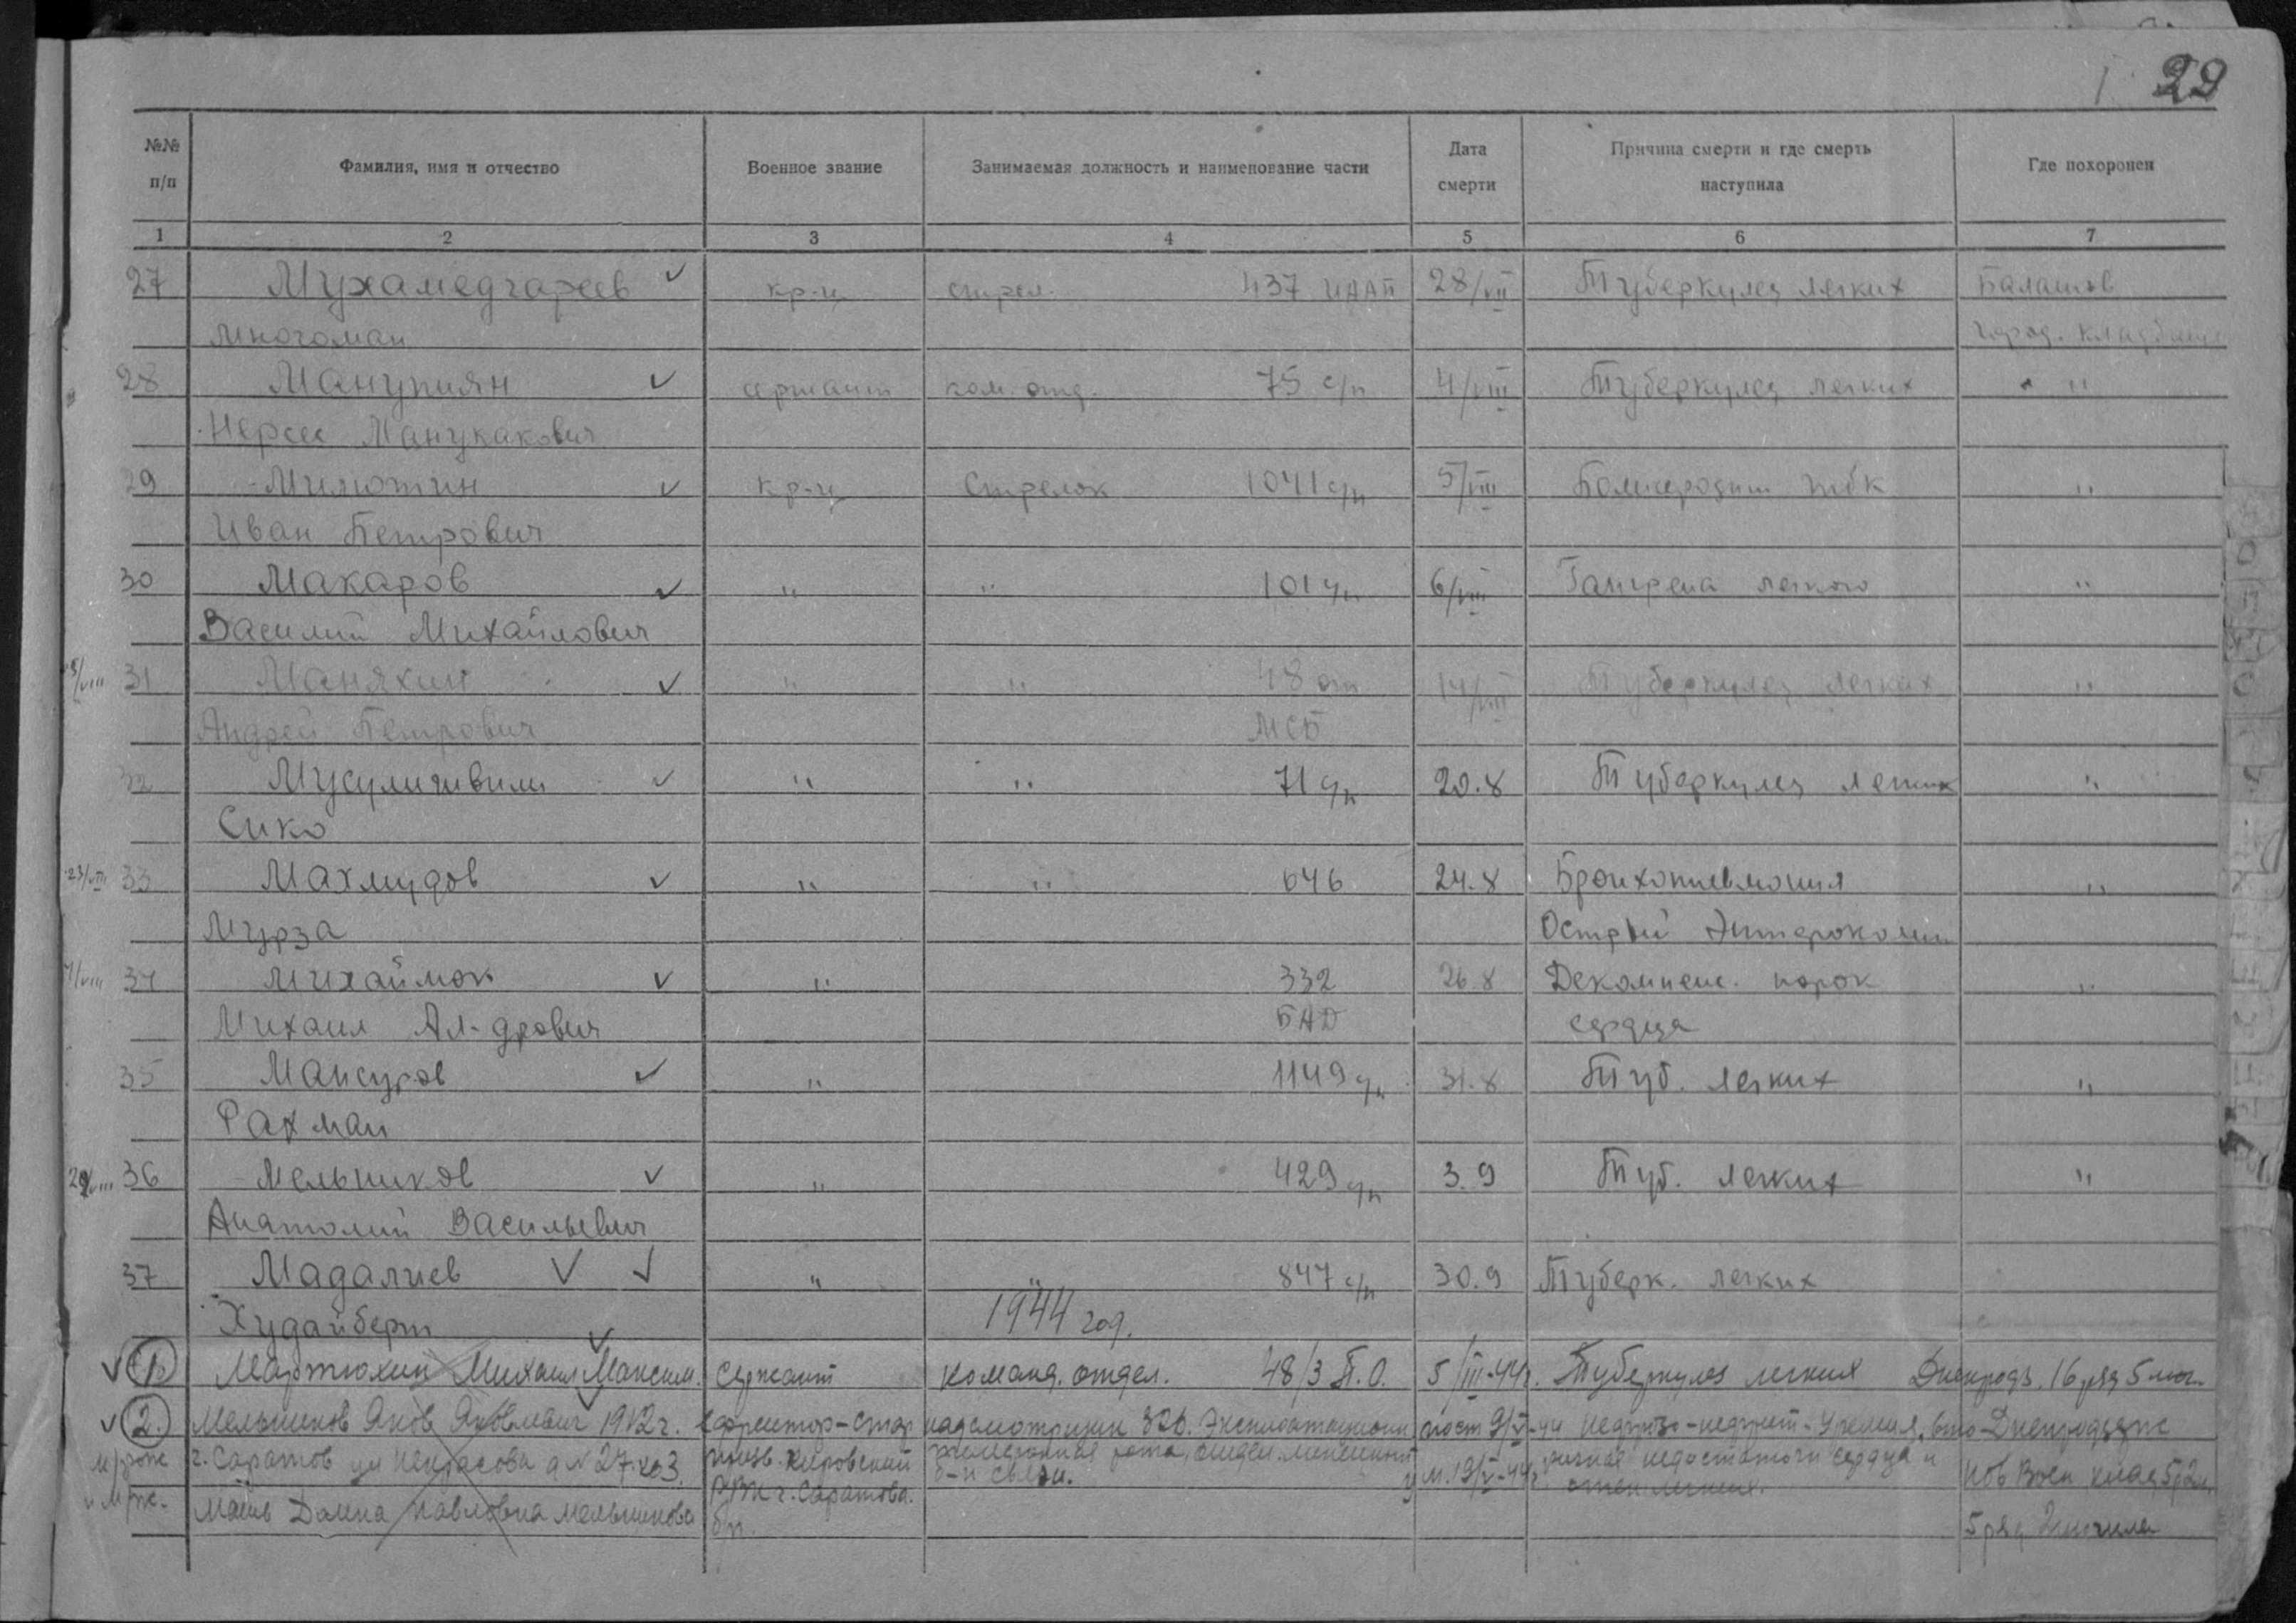 29
№№ п/п Фамилия, имя и отчество Военное звание Занимаемая должность и наименование части Дата смерти Причина смерти и где смерть наступила Где похоронен
1 2 3 4 5 6 7
27 Мухамедгареев кр-ц стрел. 437 28/VII Туберкулез легких Балашов
Многоман город. кладбище
28 Манукиян сержант ком. отд. 75 с/п 4/VIII Туберкулез легких "
Нерсес Манукакович
29 Милютин кр-ц Стрелок 1041 с/п 5/VIII "
Иван Петрович
30 Макаров " " 101 с/п 6/VIII Гангрена легкого "
Василий Михайлович
31 Маняхин " " 48 14/VIII Туберкулез легких "
Андрей Петрович МСБ
32 Мусулишвили " " 71 с/п 20.8 Туберкулез легких "
Сико
23/VIII 33 Махмудов " " 646 24.8 Бронхопневмония "
Мурза Острый Энтероколит
34 Михаймок " 332 26.8 Декомпенс. порок "
Михаил Ал-дрович БАО сердца
35 Мансуров " 1149 с/п 31.8 Туб. легких "
Рахман
36 Мельников " 429 с/п 3.9 Туб. легких "
Анатолий Васильевич
37 Мадалиев " " 847 с/п 30.9 Туберк. легких
Худайберг 1944 год.
1. Мартюхин Михаил Максим. Сержант Команд. отдел. 48/3 П.О. 5/III-44г. Туберкулез легких Днепродз. 16 ряд 5 мог.
2. Мельников Яков Яковлевич 1912 г. Ефрейтор-стар надсмотрщик 820. Эксплоатационн пост 9/V-44 Уремия,
г. Саратов ул Некрасова д № 27 кв 3. призв. Кировский рота, отдел. б-н связи. ум. 19/V-44г. недостаточн сердца и
Мать Домна Павловна Мельникова РВК г. Саратова. отек легких. 5 ряд 2 могила
б/п.